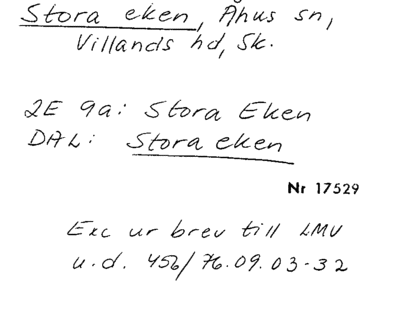 Stora eken, Åhus sn,
Villands hd, Sk.
2E 9a: Stora Eken
DAL: Stora eken
Nr 17529
Exc ur brev till LMV
u.d. 456/76.09.03-32